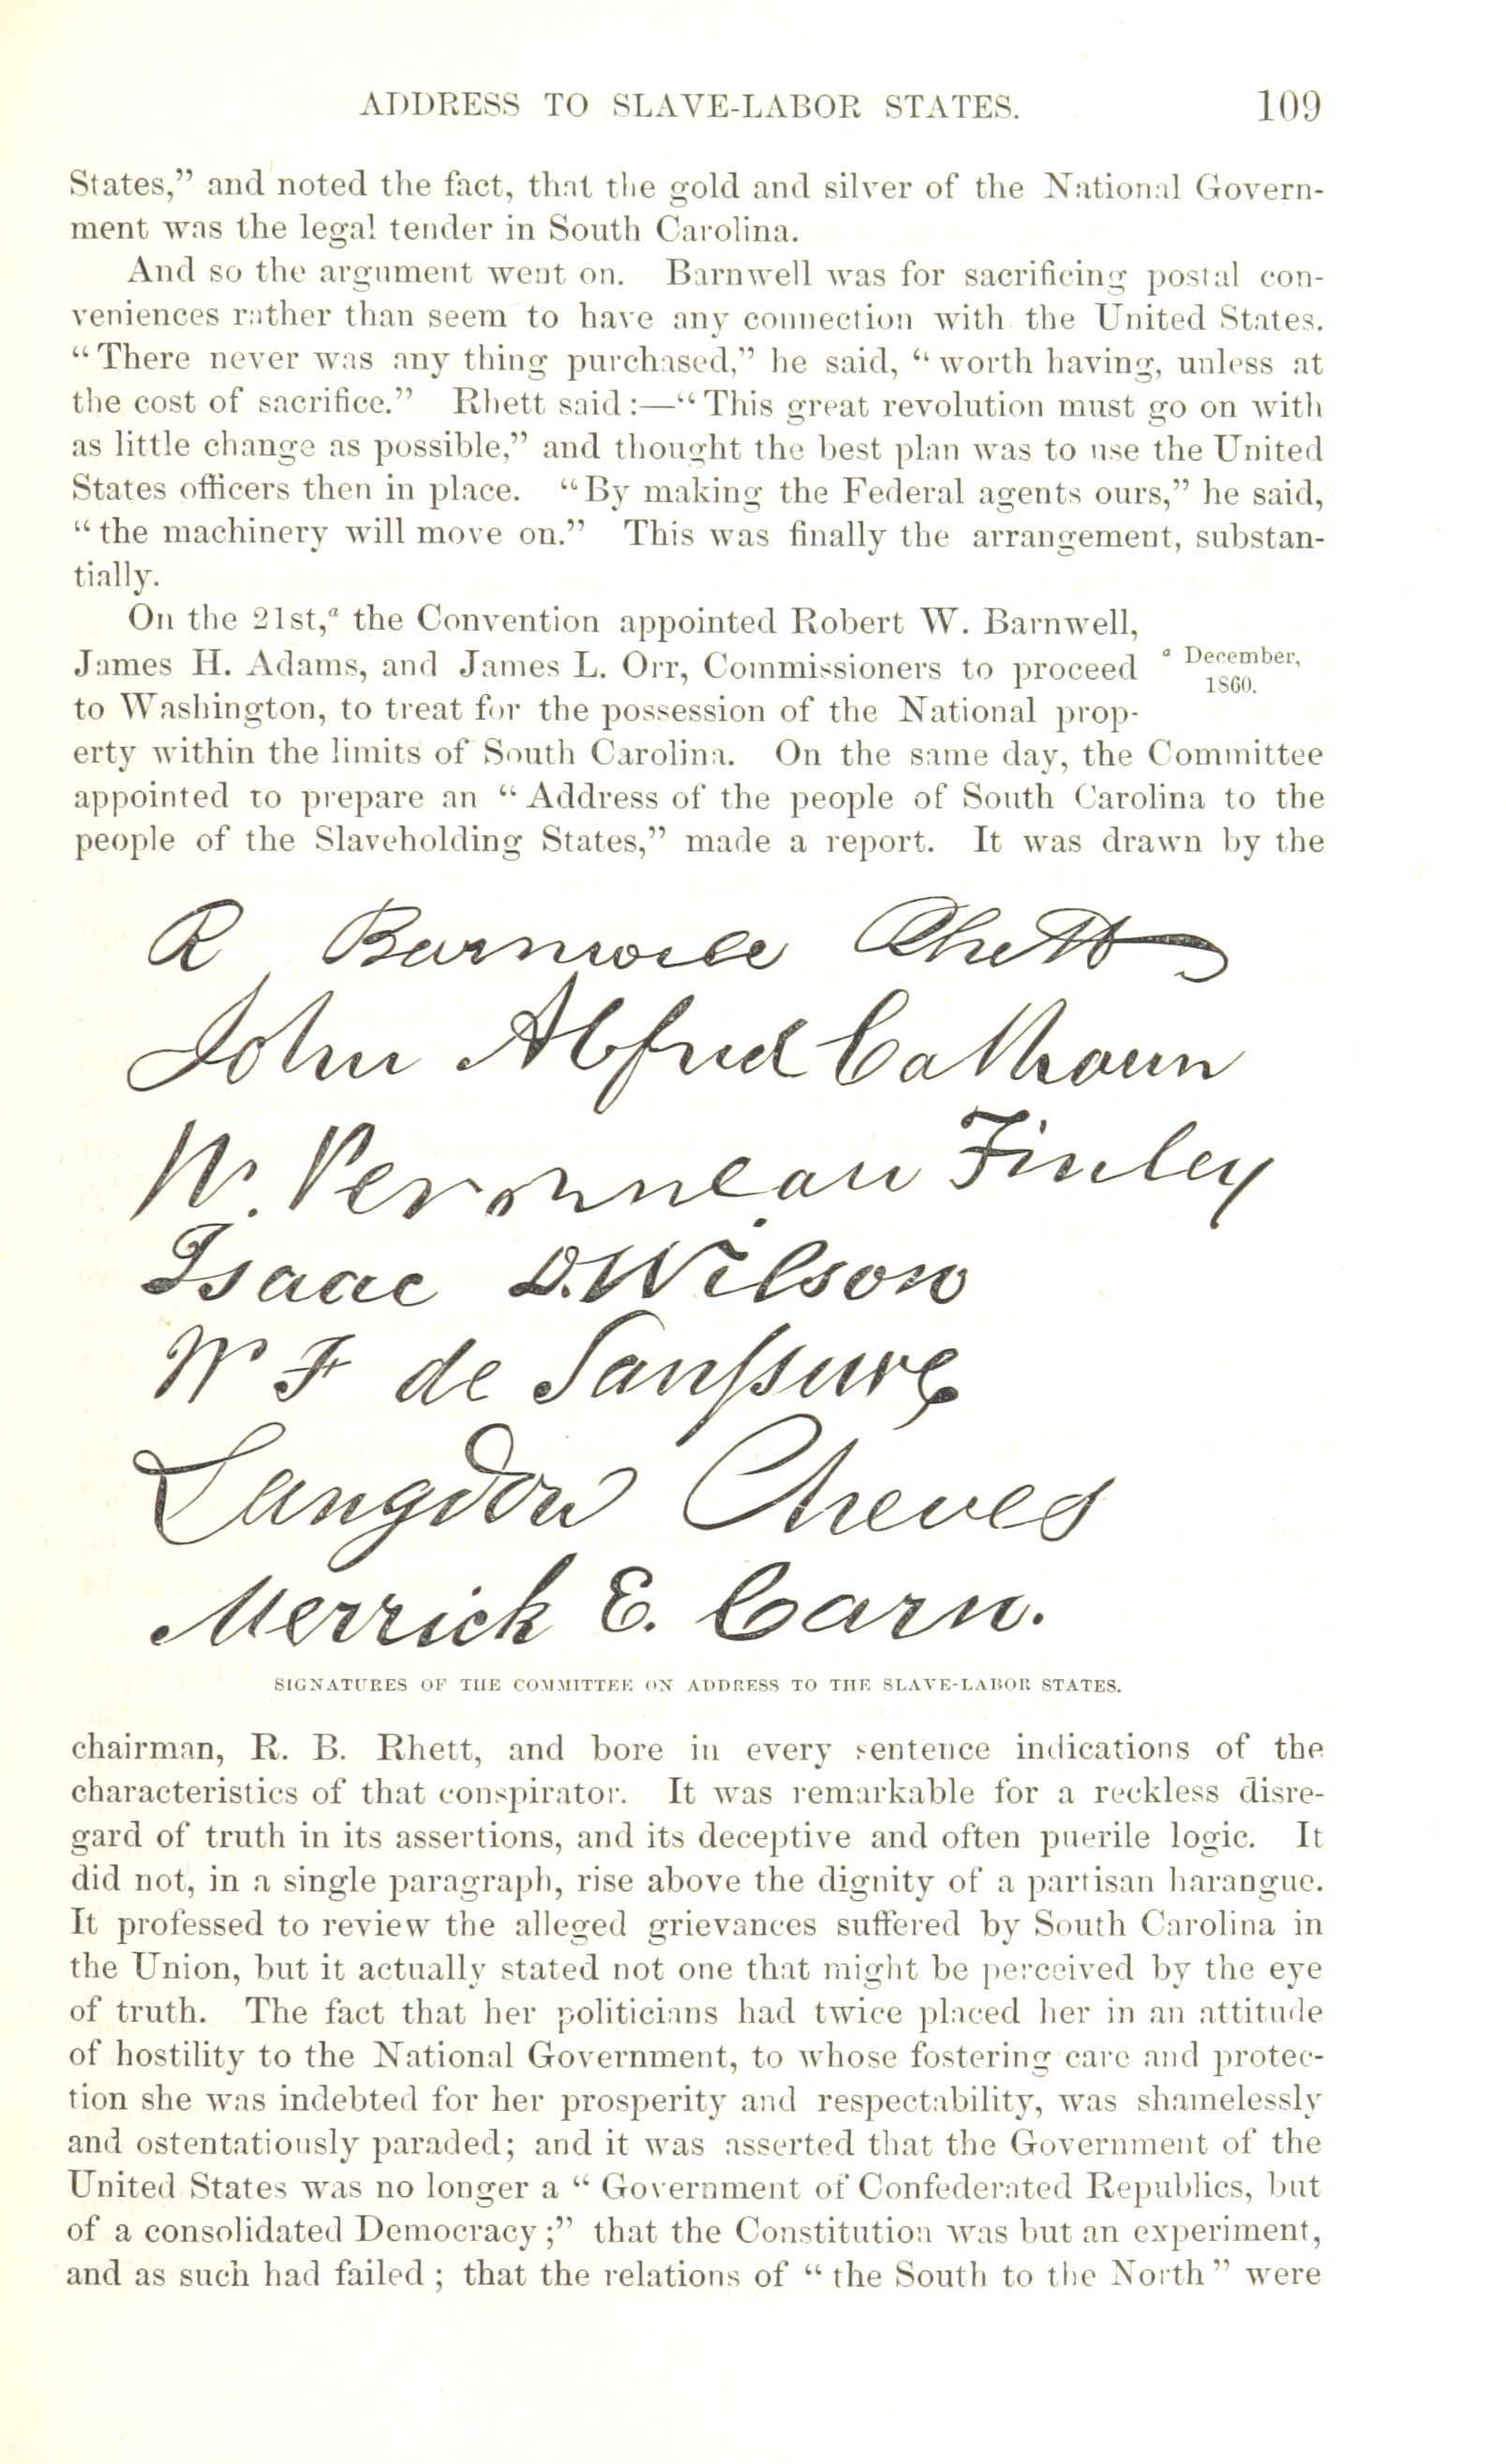 ADDRESS TO SLAVE-LABOR STATES. 109
States,” and noted the fact, that the gold and silver of the National Govern-
ment was the legal tender in South Carolina.
And so the argument went on. Barnwell was for sacrificing postal con-
veniences rather than seem to have any connection with the United States.
“There never was any thing purchased,” he said, “worth having, unless at
the cost of sacrifice.” Rhett said:—“This great revolution must go on with
as little change as possible,” and thought the best plan was to use the United
States officers then in place. “By making the Federal agents ours,” he said,
“the machinery will move on.” This was finally the arrangement, substan-
tially.
On the 21st,ᵃ the Convention appointed Robert W. Barnwell,
James H. Adams, and James L. Orr, Commissioners to proceed
ᵃ December,
1860.
to Washington, to treat for the possession of the National prop-
erty within the limits of South Carolina. On the same day, the Committee
appointed to prepare an “Address of the people of South Carolina to the
people of the Slaveholding States,” made a report. It was drawn by the
R Barnwell Rhett
John Alfred Calhoun
W. Peronneau Finley
Isaac D. Wilson
W F de Saussure
Langdon Cheves
Merrick E. Carn.
SIGNATURES OF THE COMMITTEE ON ADDRESS TO THE SLAVE-LABOR STATES.
chairman, R. B. Rhett, and bore in every sentence indications of the
characteristics of that conspirator. It was remarkable for a reckless disre-
gard of truth in its assertions, and its deceptive and often puerile logic. It
did not, in a single paragraph, rise above the dignity of a partisan harangue.
It professed to review the alleged grievances suffered by South Carolina in
the Union, but it actually stated not one that might be perceived by the eye
of truth. The fact that her politicians had twice placed her in an attitude
of hostility to the National Government, to whose fostering care and protec-
tion she was indebted for her prosperity and respectability, was shamelessly
and ostentatiously paraded; and it was asserted that the Government of the
United States was no longer a “Government of Confederated Republics, but
of a consolidated Democracy;” that the Constitution was but an experiment,
and as such had failed; that the relations of “the South to the North” were